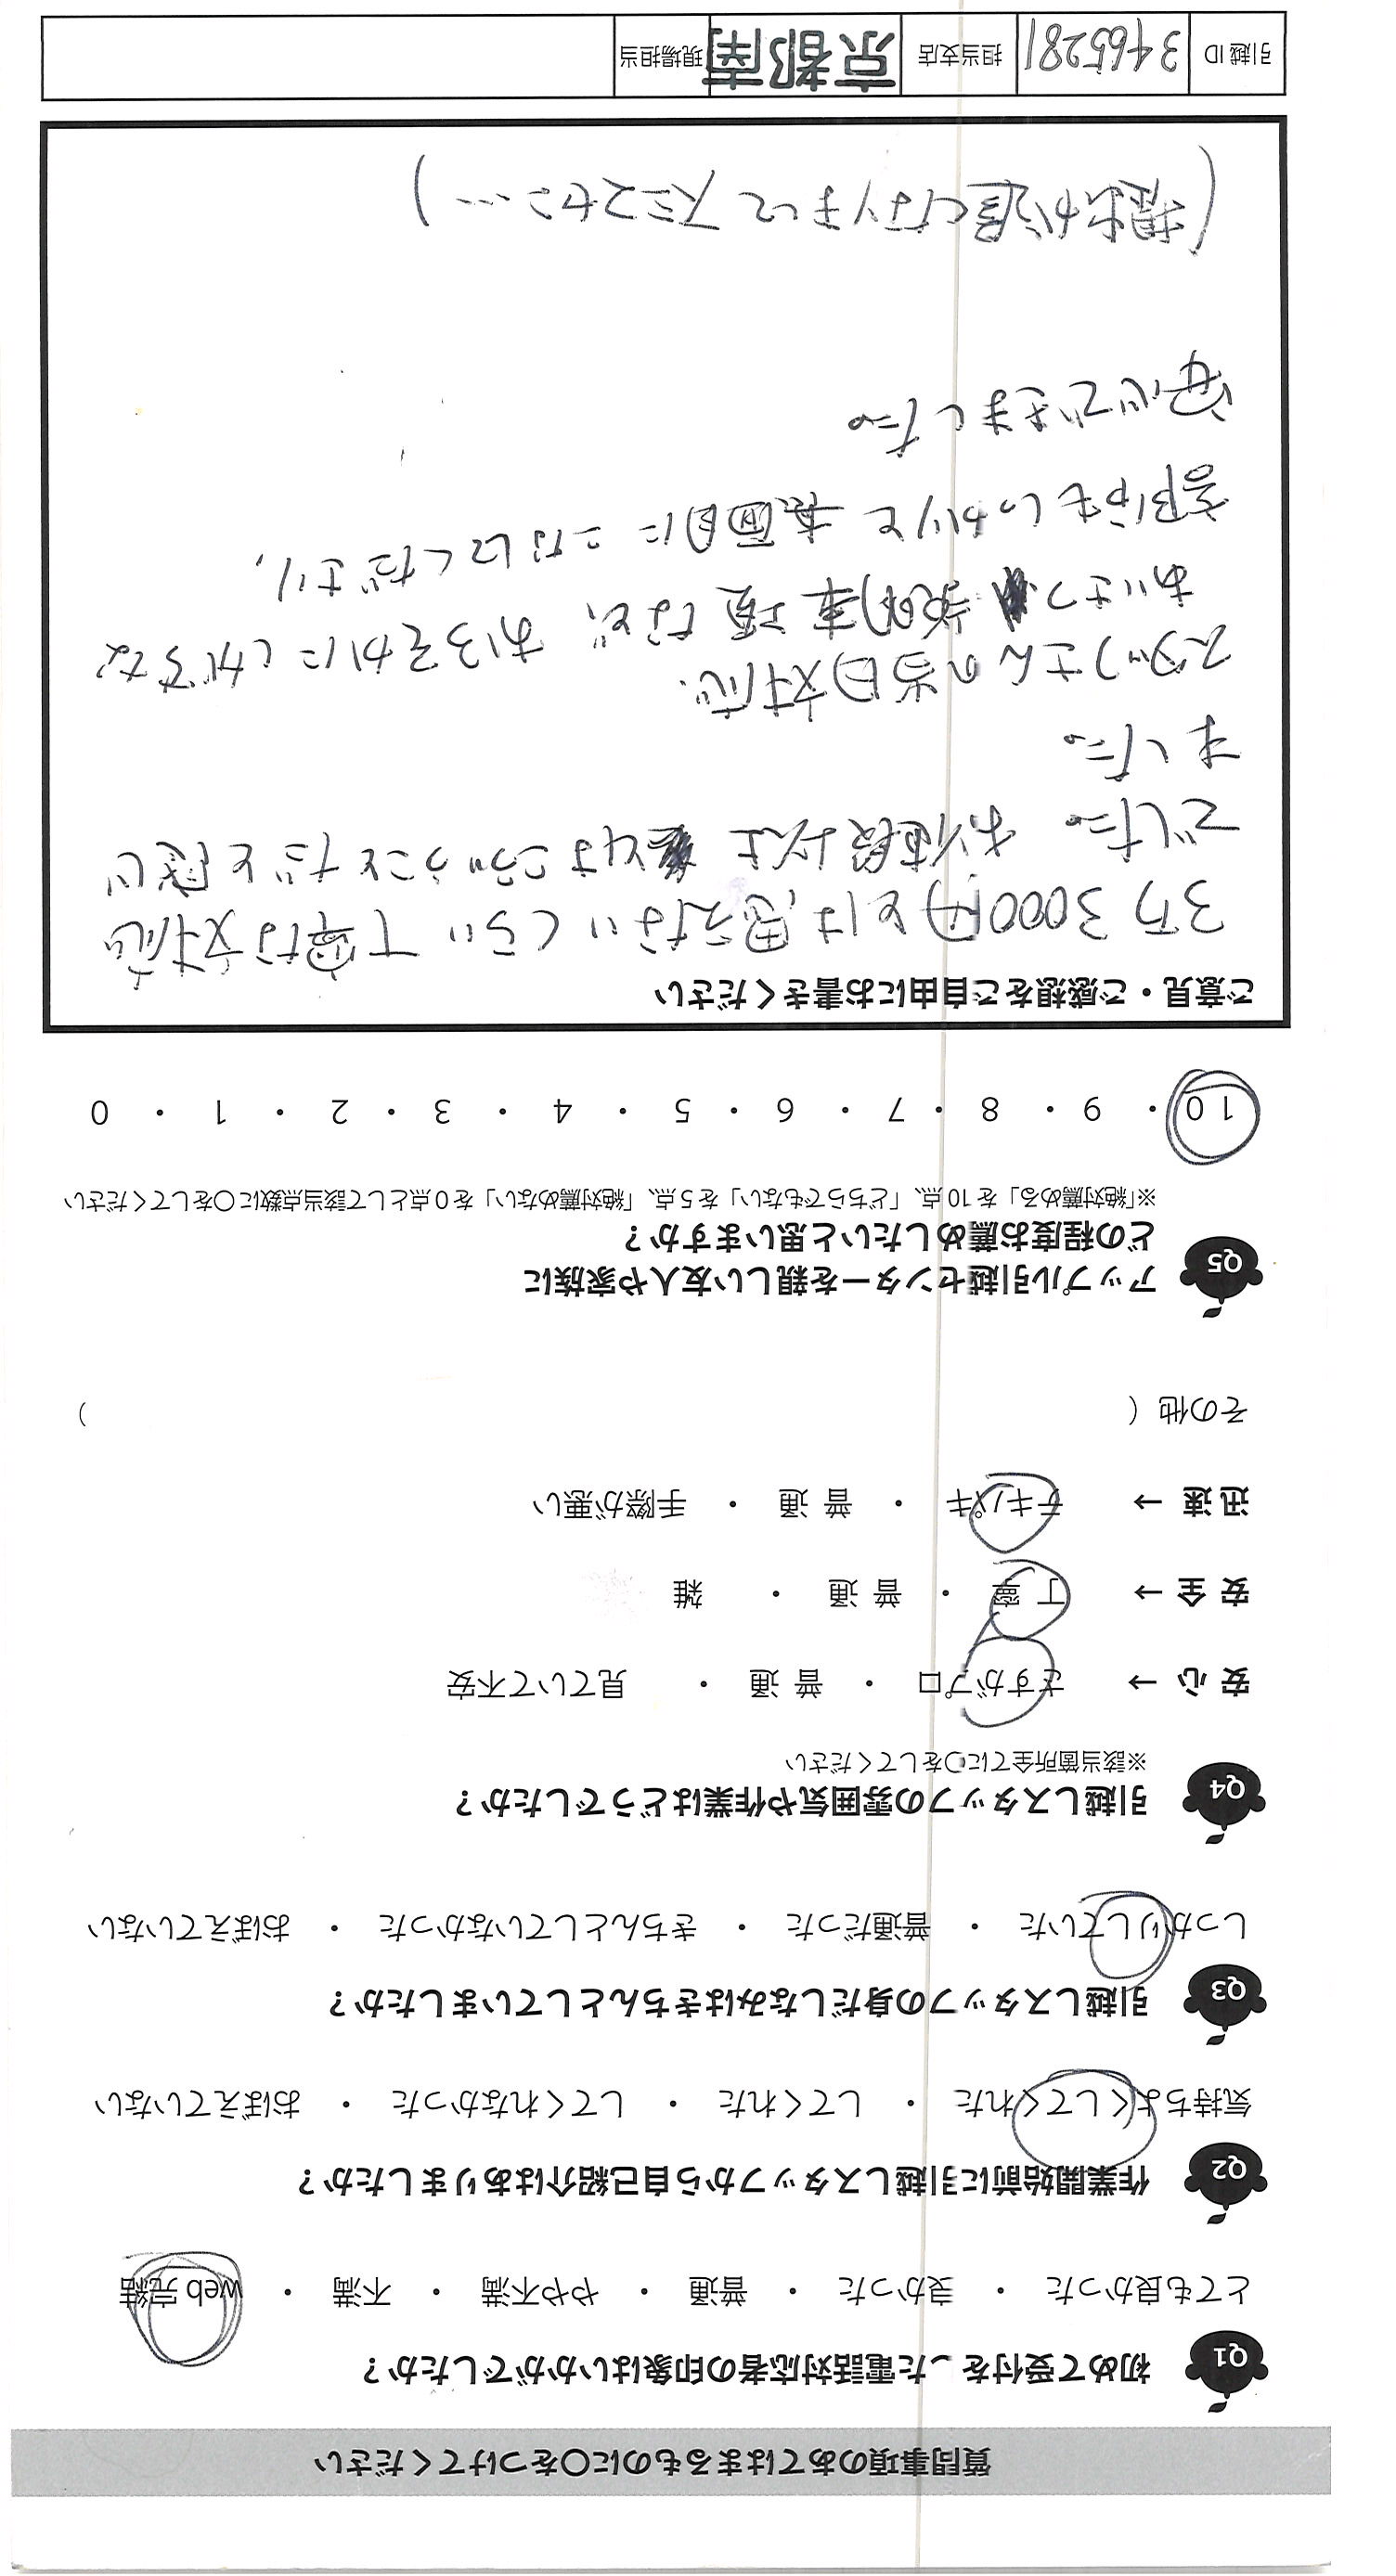 質問事項のあてはまるものに○をつけてください
Q1 初めて受付をした電話対応者の印象はいかがでしたか?
とても良かった ・ 良かった ・ 普通 ・ やや不満 ・ 不満 ・ web 完結
Q2 作業開始前に引越しスタッフから自己紹介はありましたか?
気持ちよくしてくれた ・ してくれた ・ してくれなかった ・ おぼえていない
Q3 引越しスタッフの身だしなみはきちんとしていましたか?
しっかりしていた ・ 普通だった ・ きちんとしていなかった ・ おぼえていない
Q4 引越しスタッフの雰囲気や作業はどうでしたか?
※該当箇所全てに○をしてください
安 心 → さすがプロ ・ 普 通 ・ 見ていて不安
安 全 → 丁 寧 ・ 普 通 ・ 雑
迅 速 → テキパキ ・ 普 通 ・ 手際が悪い
その他 ( )
Q5 アップル引越センターを親しい友人や家族に
どの程度お薦めしたいと思いますか?
※「絶対薦める」を 10 点、「どちらでもない」を 5 点、「絶対薦めない」を 0 点として該当点数に○をしてください
10 ・ 9 ・ 8 ・ 7 ・ 6 ・ 5 ・ 4 ・ 3 ・ 2 ・ 1 ・ 0
ご意見・ご感想をご自由にお書きください
3万3000円とは思えないくらい 丁寧な対応
でした。 お値段以上 とはこういうことだと感じ
ました。
スタッフさんの当日対応、
あいさつ 契約事項など、おろそかにしがちな
部分もしっかりと真面目にこなしてくださり、
安心できました。
(提出が遅くなりましてスミマセン…)
引越 ID 3465281 担当支店 京都南 現場担当